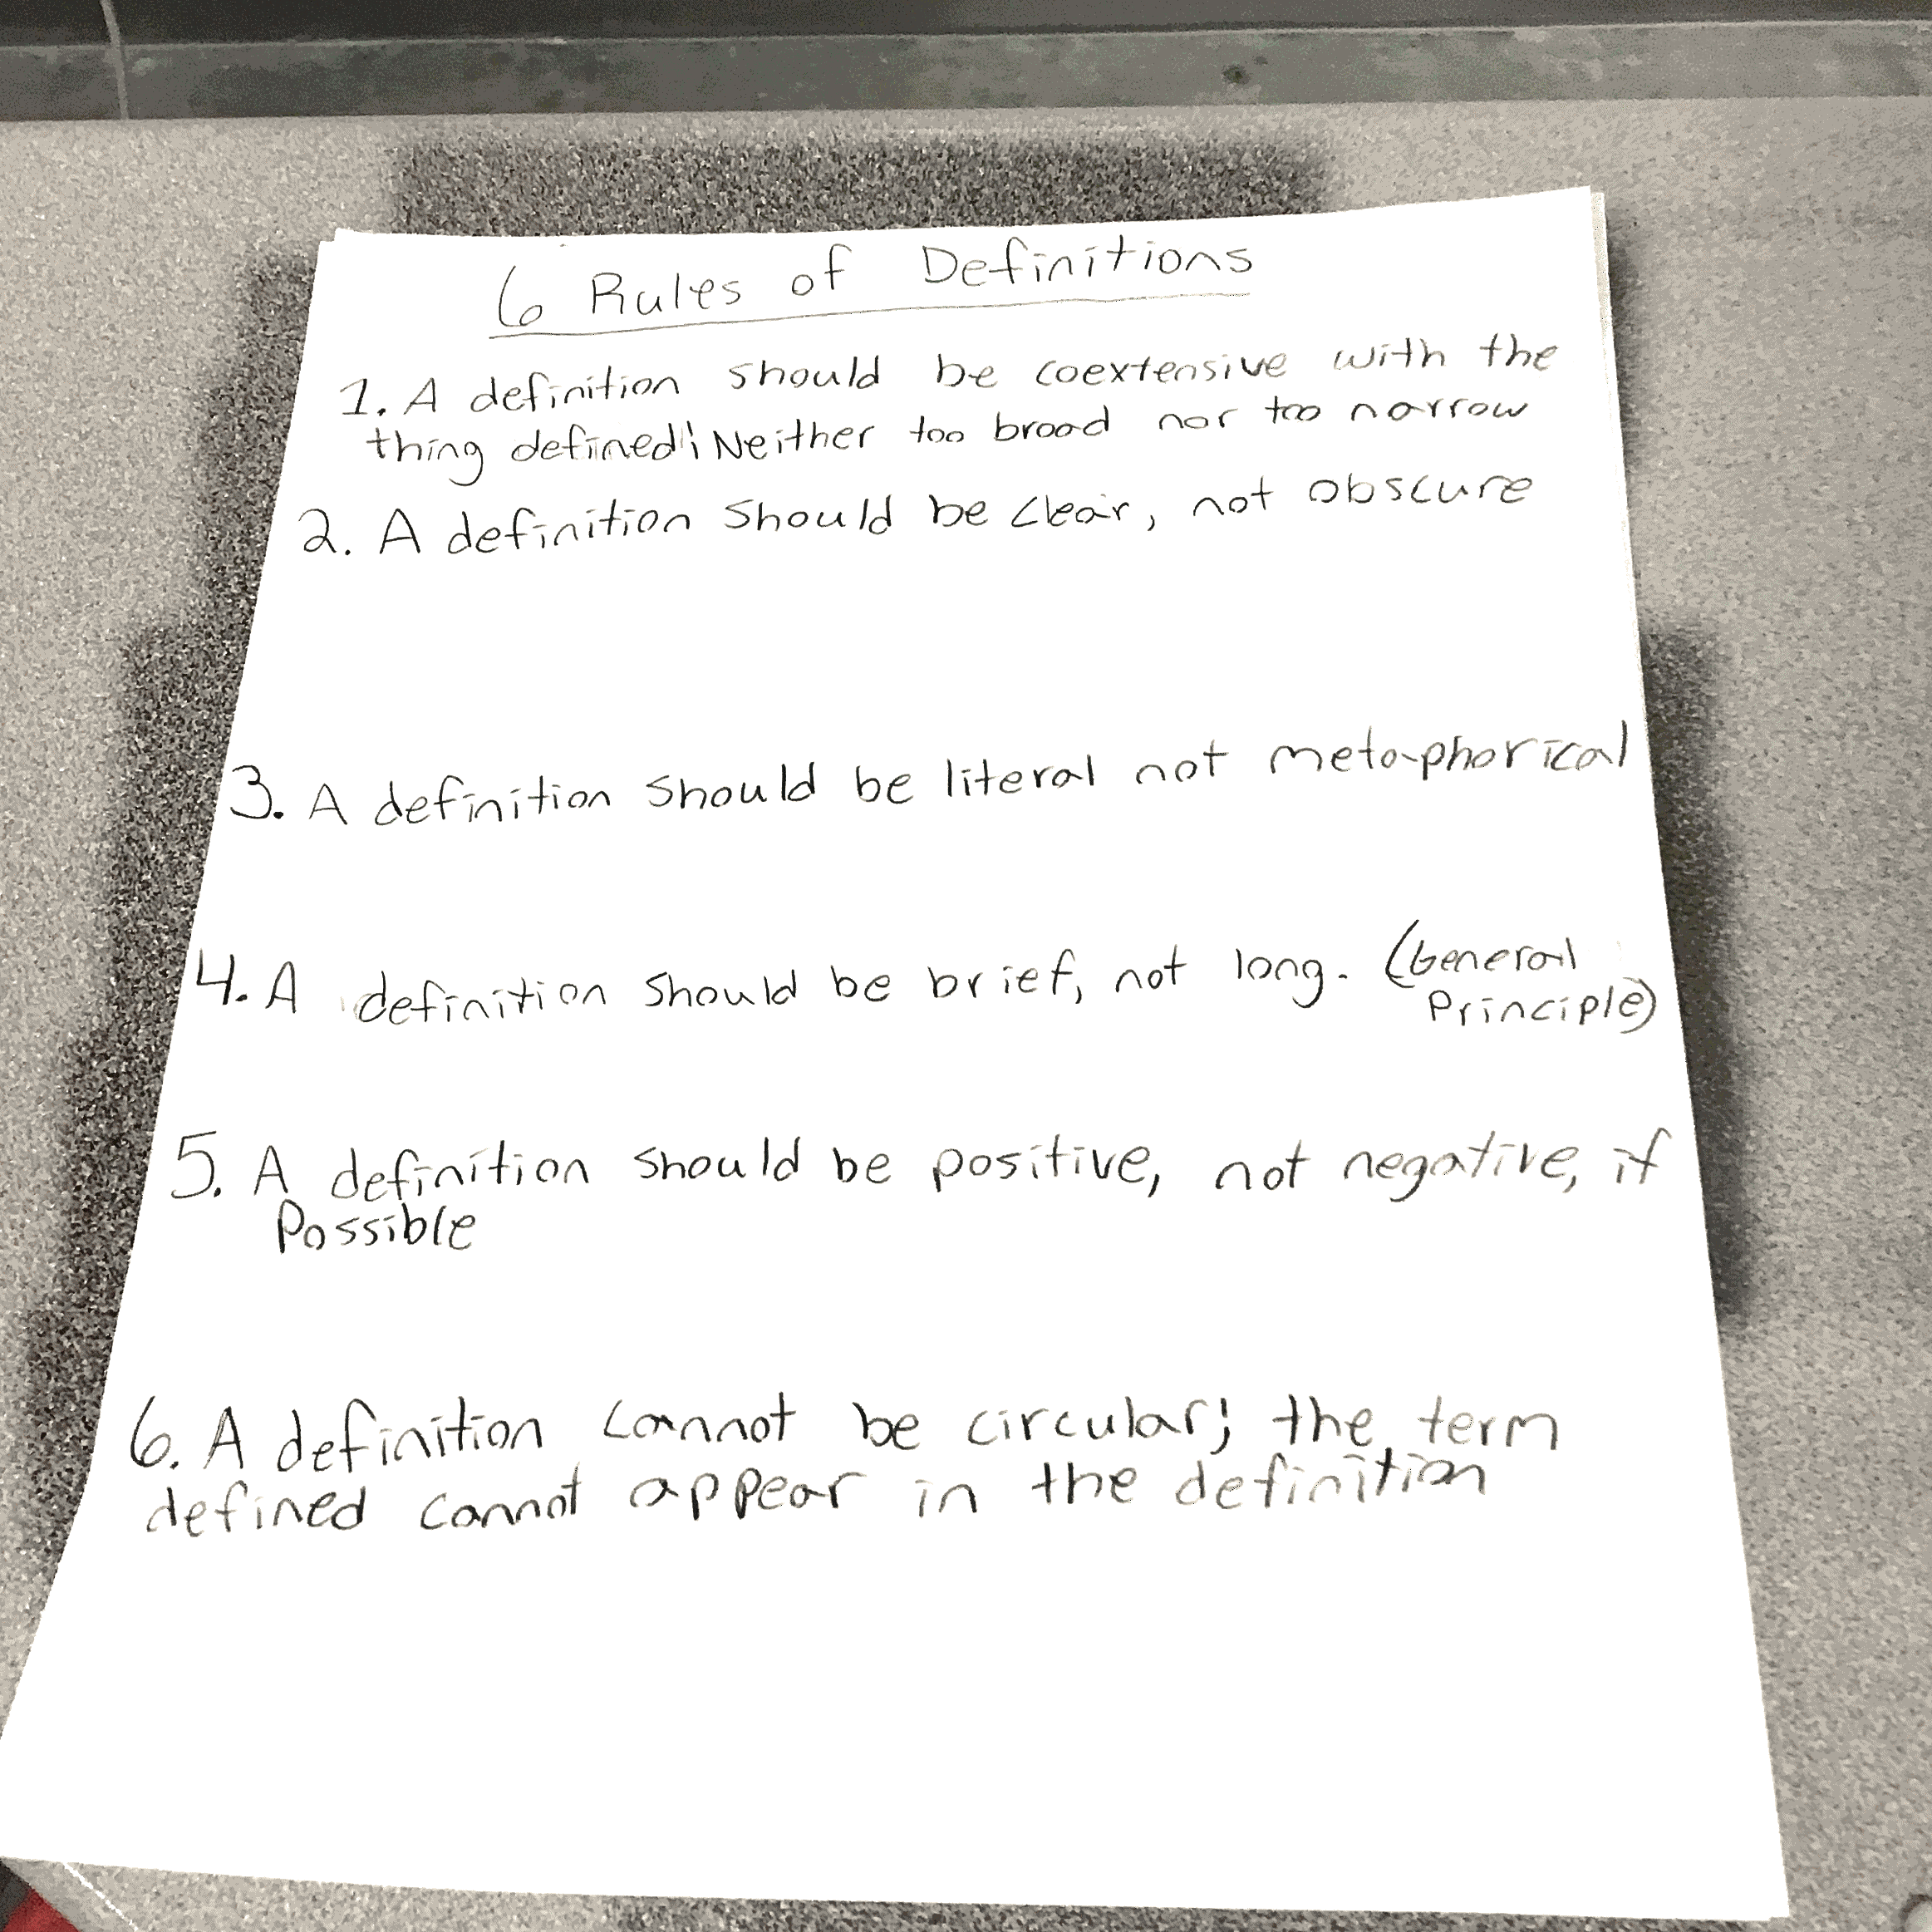 6 Rules of Definitions
1. A definition should be coextensive with the
thing defined; Neither too broad nor too narrow
2. A definition should be clear, not obscure
3. A definition should be literal not metaphorical
4. A definition should be brief, not long. (General
Principle)
5. A definition should be positive, not negative, if
Possible
6. A definition cannot be circular; the term
defined cannot appear in the definition